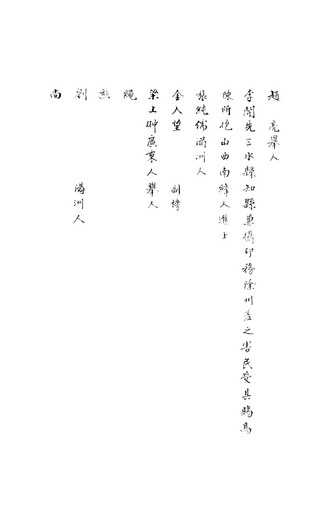 趙 亮舉人
李開先三水縣知縣兼攝印務徐州蓝之害民受其賜焉
陳所抱山西南絳人進士
張純儒滿洲人
金人望 副榜
梁上翀廣東人舉人
繩
熬
劉 滿洲人
尚